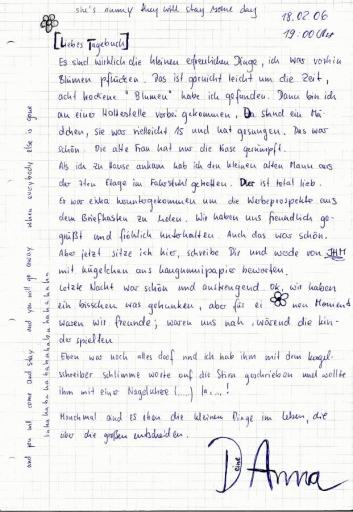 she's away they will stay some day
18.02.06
19:00 Uhr
[Liebes Tagebuch]
Es sind wirklich die kleinen erfreulichen Dinge, ich was vorhin
Blumen pflücken. Das ist garnicht leicht um die Zeit,
acht trockene "Blumen" habe ich gefunden. Dann bin ich
an einer Haltestelle vorbei gekommen. Da stand ein Mä-
dchen, sie war vielleicht 15 und hat gesungen. Das war
schön. Die alte Frau hat nur die Nase gerümpft.
Als ich zu Hause ankam hab ich den kleinen alten Mann aus
der 7ten Etage im Fahrstuhl getroffen. Der ist total lieb.
Er war extra heruntergekommen um die Werbeprospekte aus
dem Briefkasten zu holen. Wir haben uns freundlich ge-
grüßt und fröhlich unterhalten. Auch das war schön.
Aber jetzt sitze ich hier, schreibe Dir und werde von IHM
mit kügelchen aus kaugummipapier beworfen.
Letzte Nacht war schön und anstrengend. Ok, wir haben
ein bisschen was getrunken, aber für ei nen Moment
waren wir freunde; waren uns nah, während die kin-
der spielten
Eben war noch alles doof und ich hab ihm mit dem kugel-
schreiber schlimme worte auf die Stirn geschrieben und wollte
ihm mit einer Nagelschere (....) !
Manchmal sind es eben die kleinen Dinge im Leben, die
über die großen entscheiden.
Deine Anna
and you will come and stay and you will go away when everybody else is gone
hahahahahahahahahahahaha